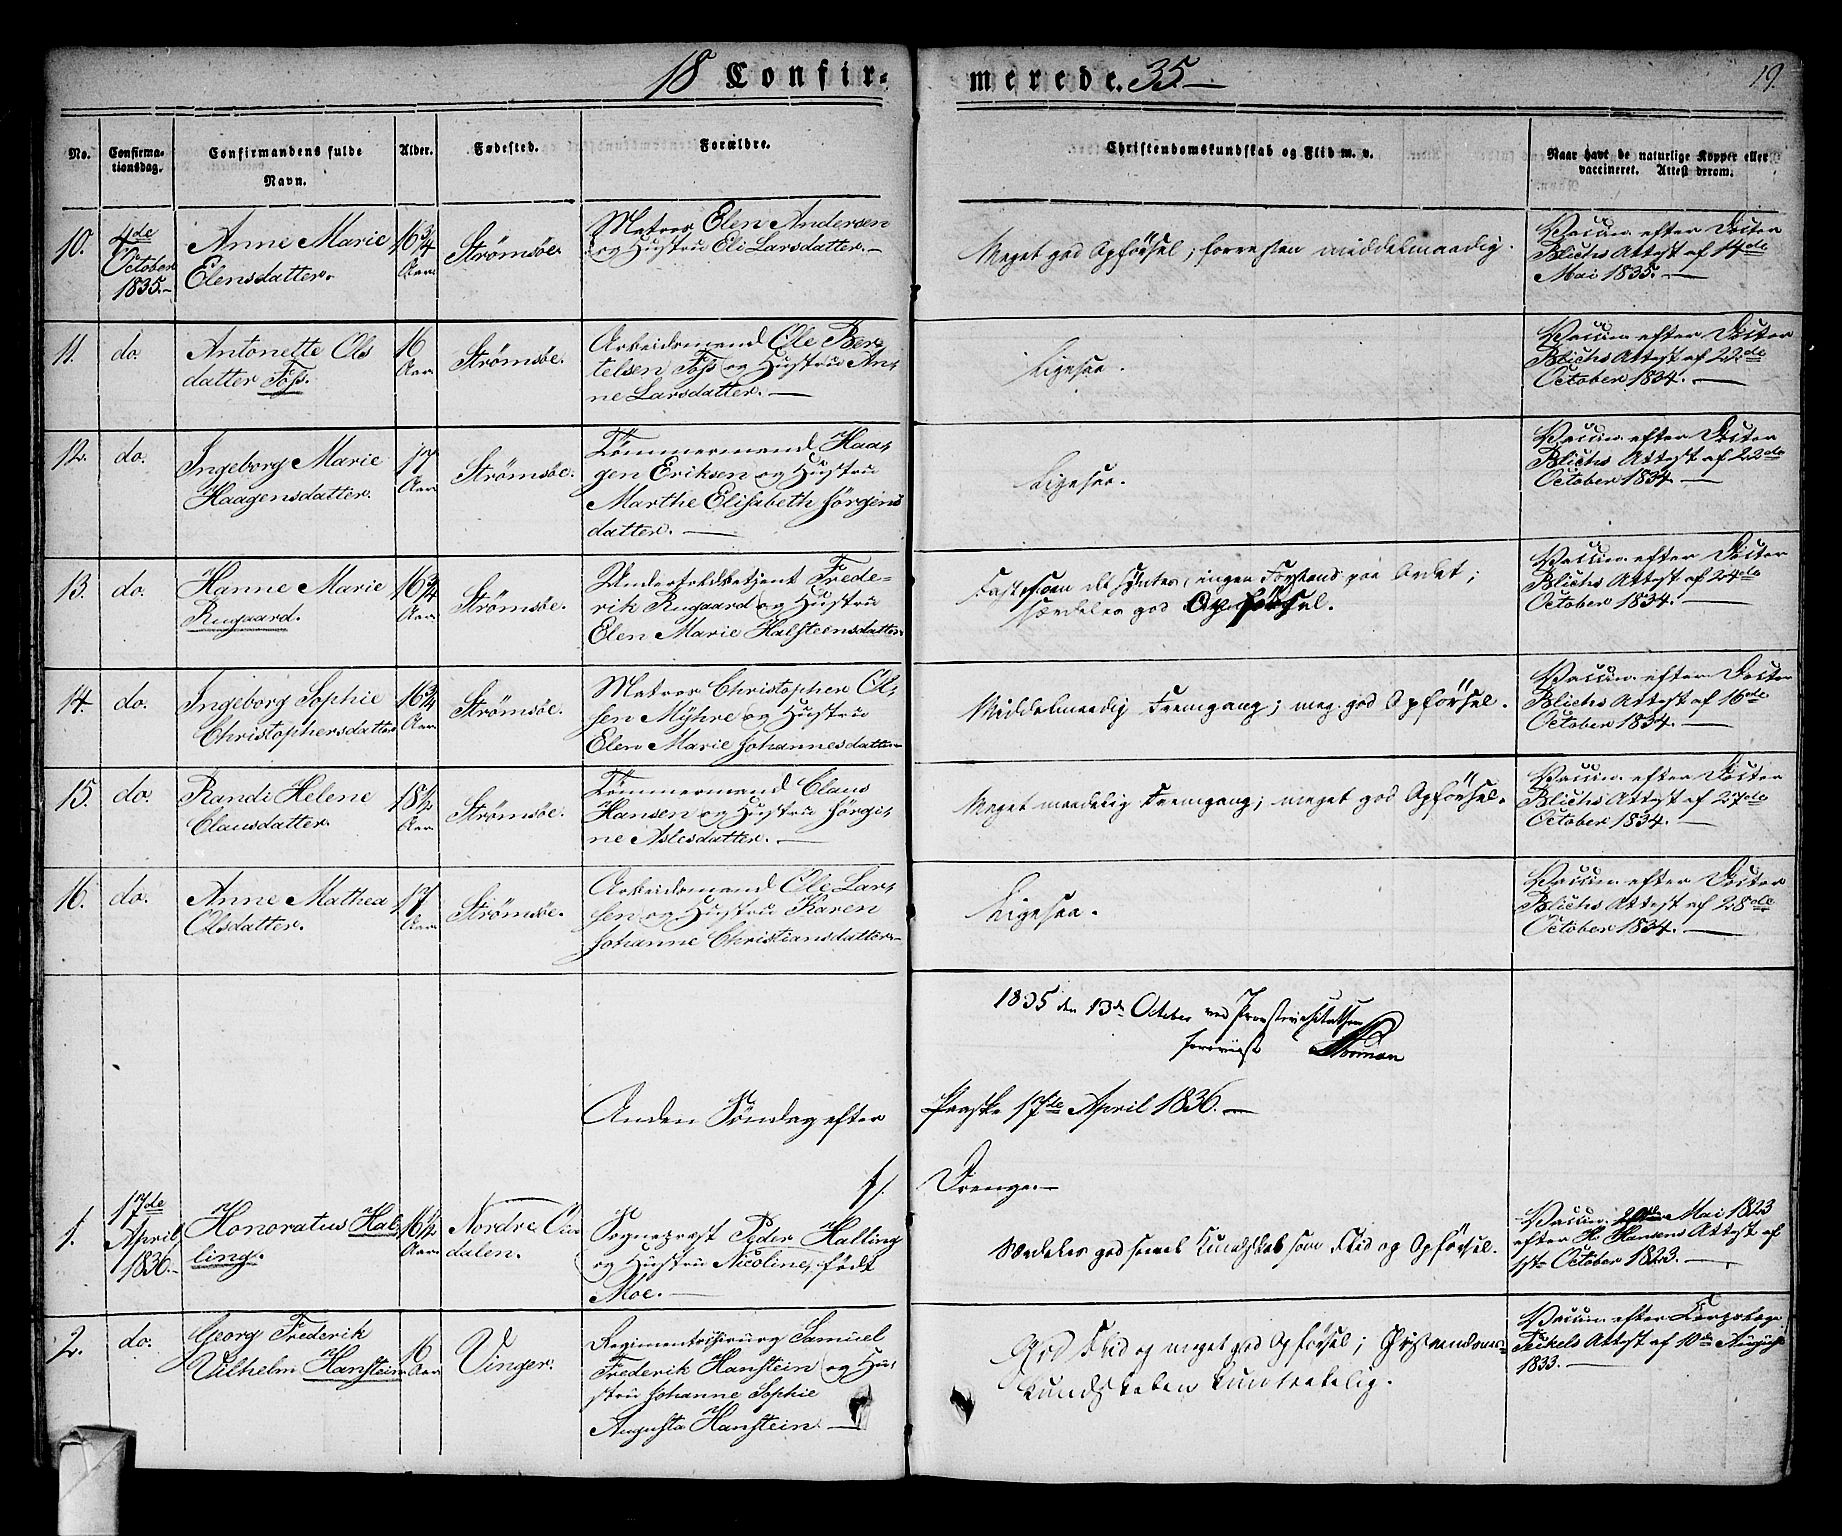 18 Confir- merede. 35. 19.
No.
Confirma-
tionsdag.
Confirmandens fulde
Navn.
Alder.
Fødested.
Forældre.
Christendomskundskab og Flid m. v.
Naar havt de naturlige Kopper eller
vaccineret. Attest derom.
10.
4de
October
1835.
Anne Marie
Elensdatter.
16 3/4
Aar
Strømsøe.
Matros Elen Andersen
og Hustru Eli Larsdatter.
Meget god Opførsel; forresten middelmaadig.
Vaccin. efter Doctor
Blichs Attest af 14de
Mai 1835.
11.
do.
Antonette Ols
datter Foss.
16
Aar
Strømsøe.
Arbeidsmand Ole Ber
telsen Foss og Hustru An,
ne Larsdatter.
Ligesaa.
Vaccin. efter Doctor
Blichs Attest af 22de
October 1834.
12.
do.
Ingeborg Marie
Haagensdatter.
17
Aar
Strømsøe.
Tømmermand Haa,
gen Eriksen og Hustru
Marthe Elisabeth Jørgens
datter.
Ligesaa.
Vaccin. efter Doctor
Blichs Attest af 22de
October 1834.
13.
do.
Hanne Marie
Rugaard.
16 3/4
Aar
Strømsøe.
Undertoldbetjent Frede-
rik Rugaard og Hustru
Elen Marie Halsteensdatter
ingen Forstand paa Ordet;
særdeles god Opførsel.
Vaccin. efter Doctor
Blichs Attest af 24de
October 1834.
14.
do.
Ingeborg Sophie
Christophersdatter
16 3/4
Aar
Strømsøe.
Matros Christopher Ol,
sen Myhre og Hustru
Elen Marie Johannesdatter
Middelmaadig Fremgang; meg. god Opførsel.
Vaccin. efter Doctor
Blichs Attest af 16de
October 1834.
15.
do.
Randi Helene
Clausdatter.
18 1/2
Aar
Strømsøe.
Tømmermand Claus
Hansen og Hustru Jørgi,
ne Aslesdatter.
Meget maadelig Fremgang; meget god Opførsel.
Vaccin. efter Doctor
Blichs Attest af 27de
October 1834.
16.
do.
Anne Mathea
Olsdatter.
17
Aar
Strømsøe.
Arbeidsmand Ole Lar,
sen og Hustru Karen
Johanne Christiansdatter
Ligesaa.
Vaccin. efter Doctor
Blichs Attest af 28de
October 1834.
1835 den 13de October ved Provstevisitatsen
foreviist
Anden Søndag efter Paaske 17de April 1836.
Drenge.
1.
17de
April
1836.
Honoratus Hal,
ling.
16 1/2
Aar
Nordre Au
dalen.
Sognepræst Peder Halling
og Hustru Nicoline, født
Moe.
Særdeles god saavel Kundskab som Flid og Opførsel.
Vaccin. Mai 1823
efter H. Hansens Attest af
1ste October 1823.
2.
do.
Georg Frederik
Vilhelm Hanstein
16
Aar
Vinger.
Regimentschirurg Samuel
Frederik Hanstein og Hu,
stru Johanne Sophie
Augusta Hanstein
God Flid og meget god Opførsel; Christendoms-
kundskaben
Vaccin. efter Corpslæge
Attest af 10de August
1833.